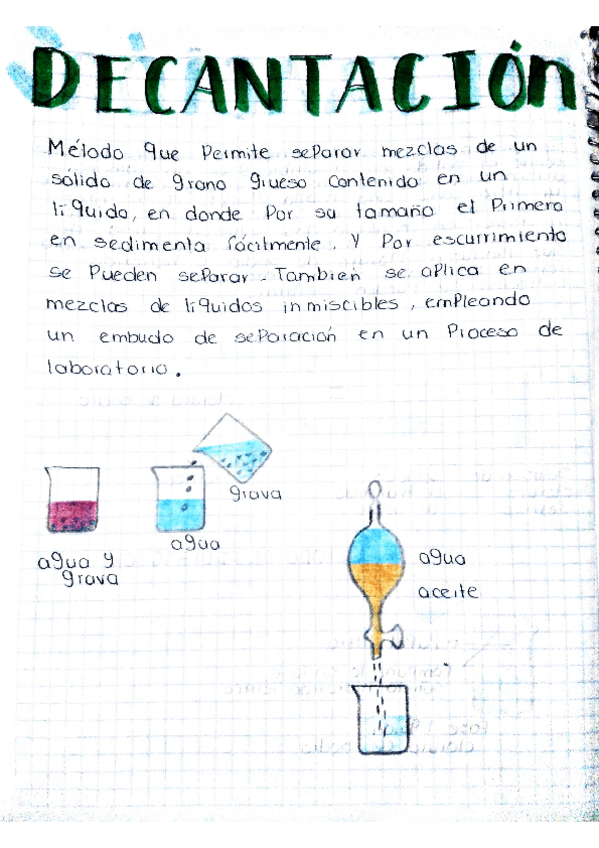 DECANTACIÓn
Método que Permite separar mezclas de un
sólido de grano grueso contenido en un
líquido, en donde Por su tamaño el Primero
en sedimenta fácilmente. Y Por escurrimiento
se Pueden separar. Tambien se aplica en
mezclas de líquidos inmiscibles, empleando
un embudo de separación en un Proceso de
laboratorio.
grava
agua
agua y
grava
agua
aceite